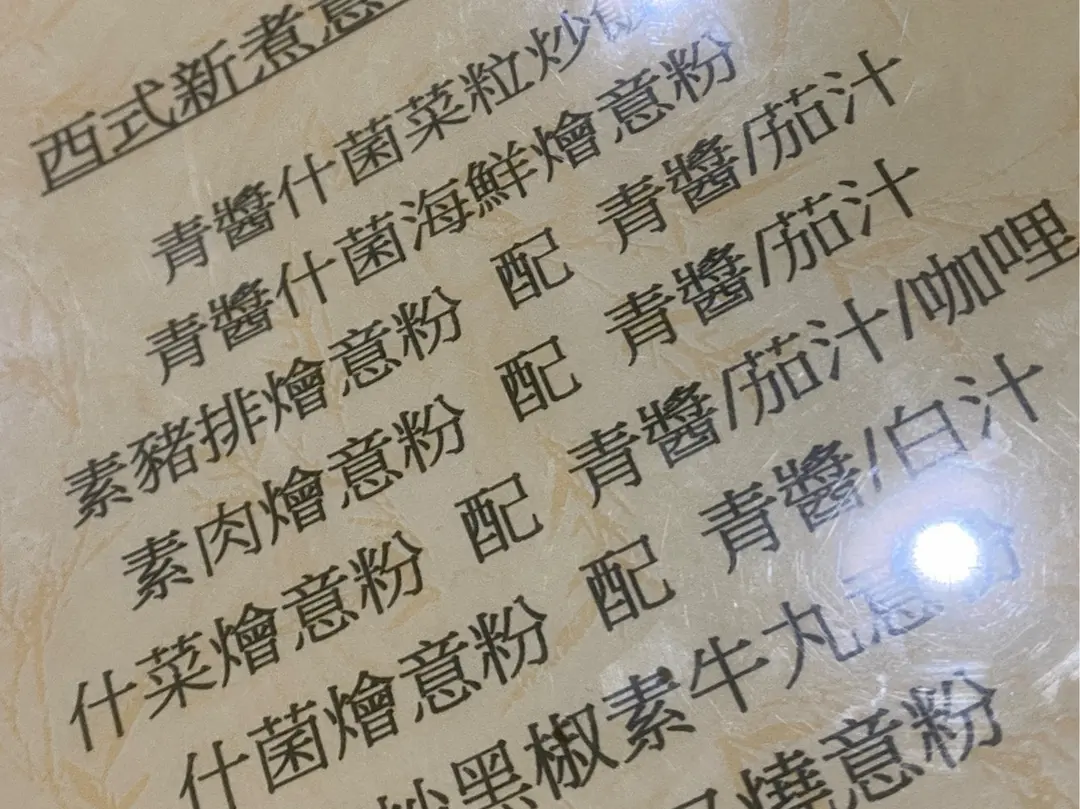 西式新煮意
青醬什菌菜粒炒飯
青醬什菌海鮮燴意粉
素豬排燴意粉 配 青醬/茄汁
素肉燴意粉 配 青醬/茄汁
什菜燴意粉 配 青醬/茄汁/咖哩
什菌燴意粉 配 青醬/白汁
炒黑椒素牛丸意粉
燒意粉